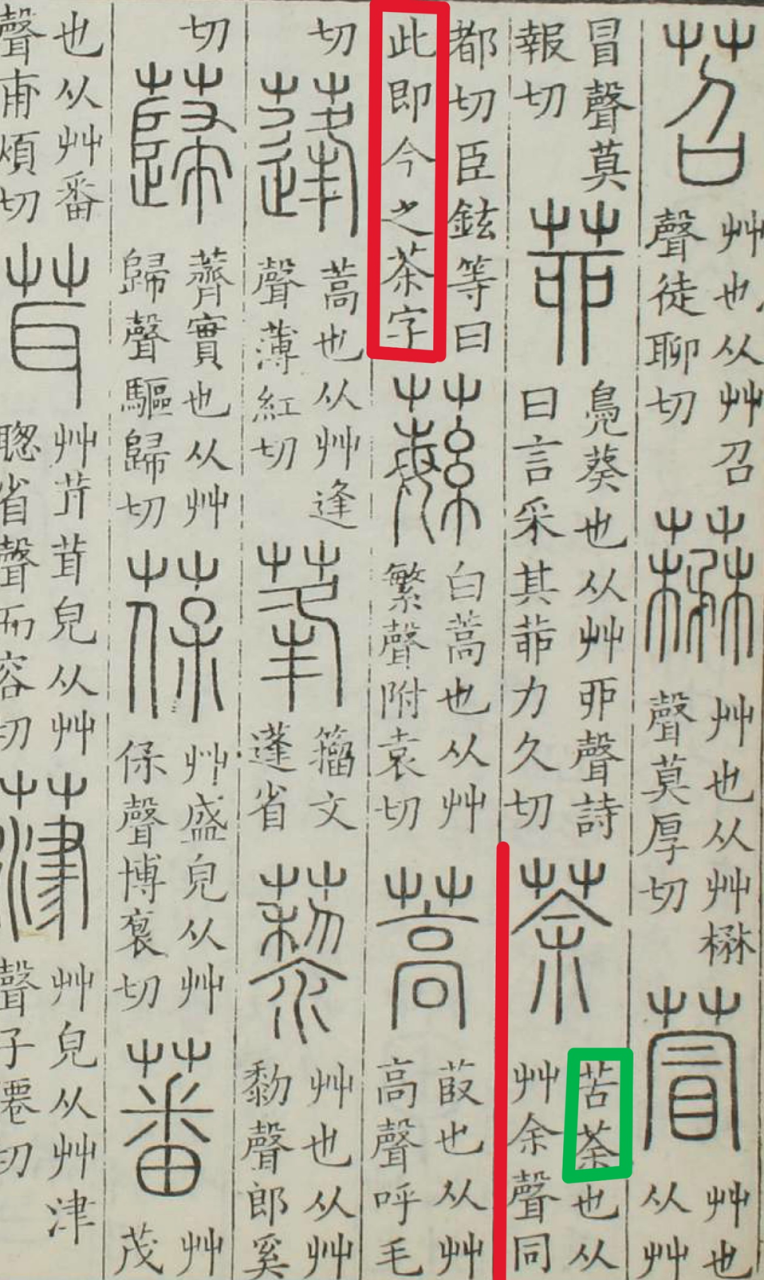 苕艸也从艸召聲徒聊切𦽇艸也从艸楙聲莫厚切萺艸也从艸
冒聲莫報切茆鳧葵也从艸丣聲詩曰言采其茆力久切荼苦荼也从艸余聲同
都切臣鉉等曰此即今之茶字蘩白蒿也从艸繁聲附袁切蒿菣也从艸高聲呼毛
切蓬蒿也从艸逢聲薄紅切莑籀文蓬省藜艸也从艸黎聲郎奚
切蘬薺實也从艸歸聲驅歸切葆艸盛皃从艸保聲博褎切蕃艸茂
也从艸番聲甫煩切茸艸茸茸皃从艸聰省聲而容切葏艸皃从艸津聲子僊切